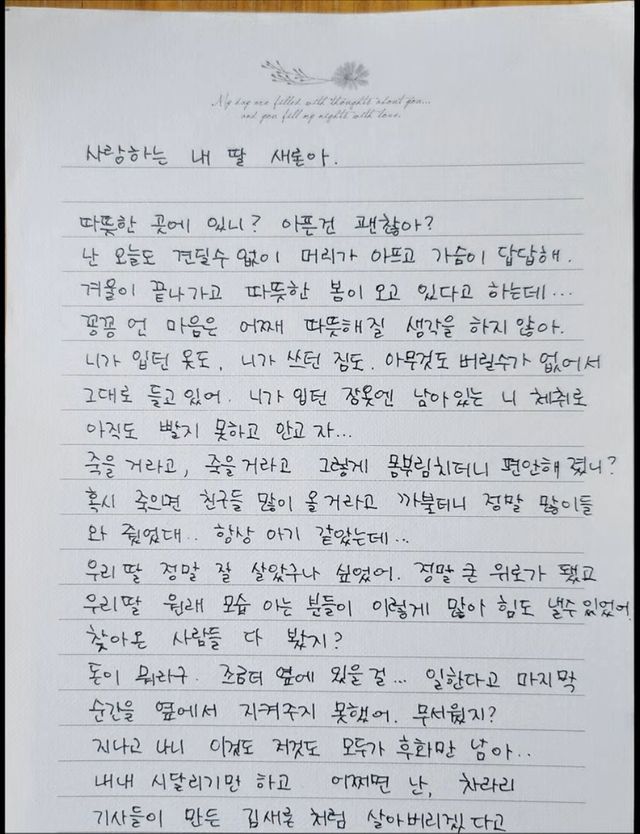 My day are filled with thoughts about you...
and you fill my nights with love.
사랑하는 내 딸 새론아.
따뜻한 곳에 있니? 아픈건 괜찮아?
난 오늘도 견딜수 없이 머리가 아프고 가슴이 답답해.
겨울이 끝나가고 따뜻한 봄이 오고 있다고 하는데...
꽁꽁 언 마음은 어째 따뜻해질 생각을 하지 않아.
니가 입던 옷도, 니가 쓰던 짐도. 아무것도 버릴수가 없어서
그대로 들고 있어. 니가 입던 잠옷엔 남아있는 니 체취로
아직도 빨지 못하고 안고 자...
죽을 거라고, 죽을거라고 그렇게 몸부림치더니 편안해 졌니?
혹시 죽으면 친구들 많이 올거라고 까불더니 정말 많이들
와 줬었대.. 항상 아기 같았는데...
우리 딸 정말 잘 살았구나 싶었어. 정말 큰 위로가 됐고
우리딸 원래 모습 아는 분들이 이렇게 많아 힘도 낼수 있었어.
찾아온 사람들 다 봤지?
돈이 뭐라구. 조금더 옆에 있을 걸... 일한다고 마지막
순간을 옆에서 지켜주지 못했어. 무서웠지?
지나고 나니 이것도 저것도 모두가 후회만 남아..
내내 시달리기만 하고 어쩌면 난, 차라리
기사들이 만든 김새론 처럼 살아버리겠다고